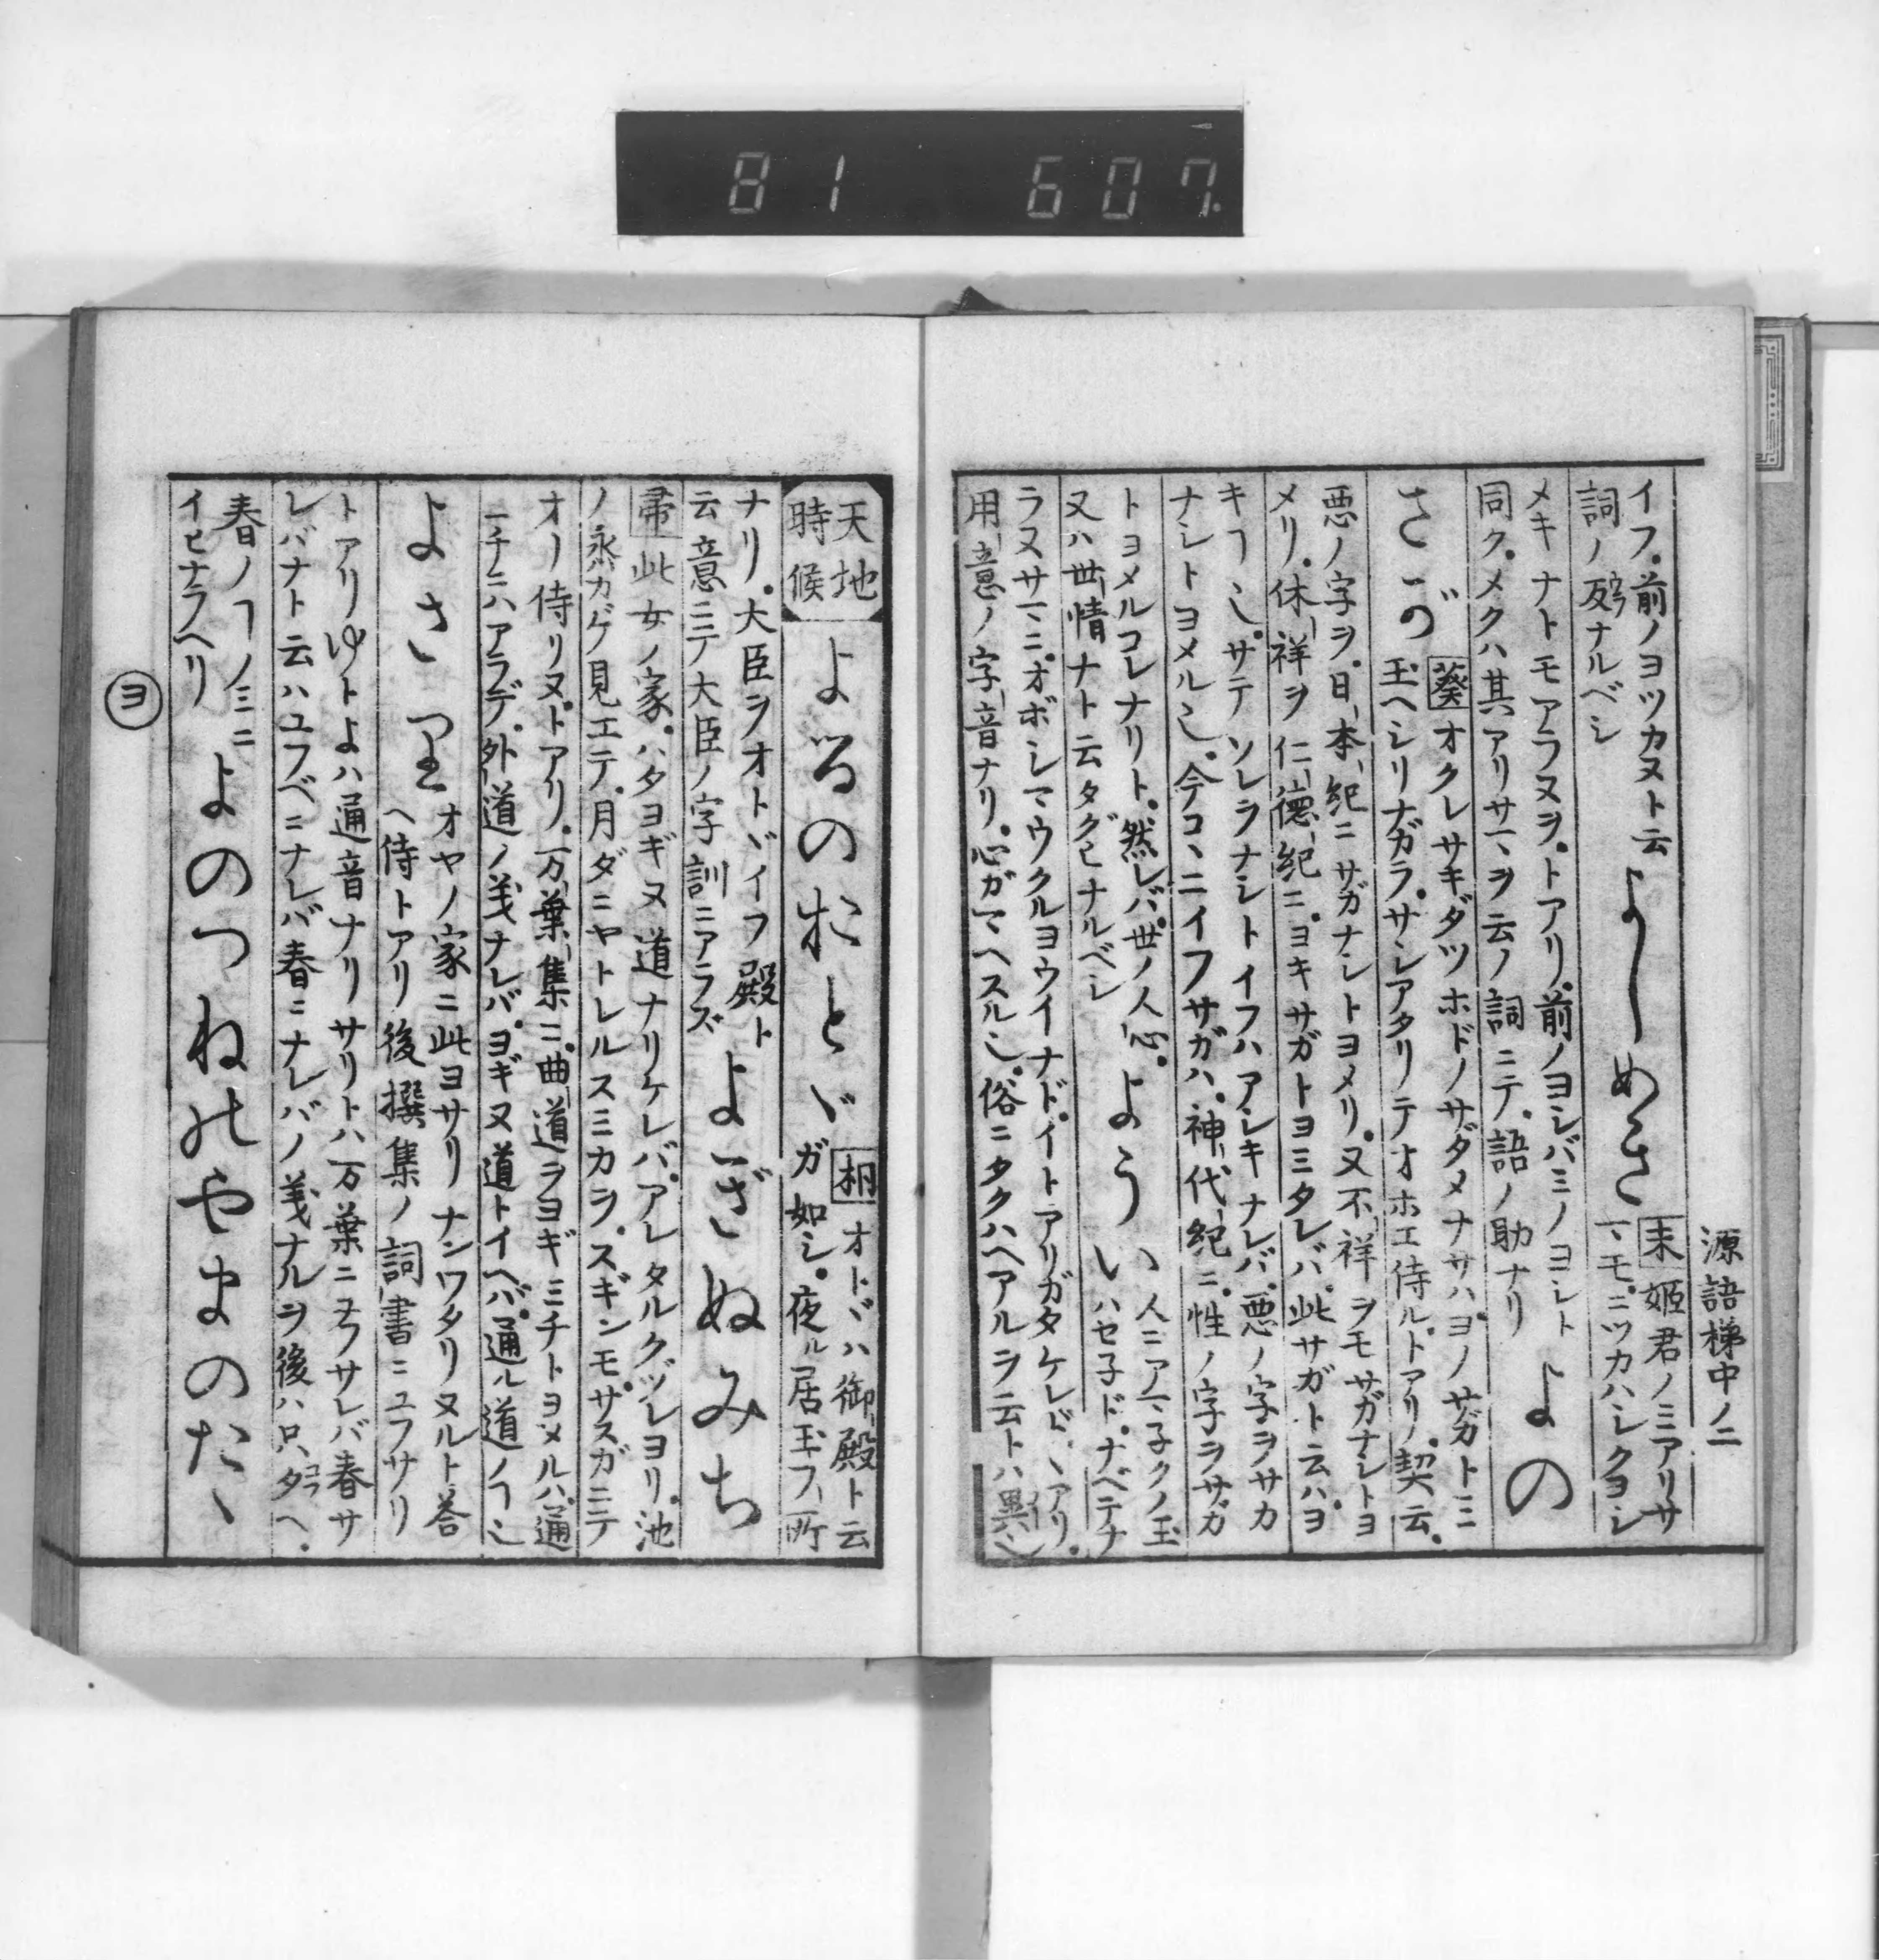 81 607.
源語梯中ノ二
イフ。前ノヨツカヌト云
詞ノ反ナルベシ
よしめきて
末 姫君ノミアリサ
マモ。ニツカハシクヨシ
メキナトモアラヌヲ。トアリ。前ノヨシバミノヨシト
同ク。メクハ其アリサマヲ云ノ詞ニテ。語ノ助ナリ
よの
さが
葵 オクレサキダツホドノサダメナサハ。ヨノサガトミ
玉ヘシリナガラ。サシアタリテオホエ侍ル。トアリ。契云。
悪ノ字ヲ。日本紀ニサガナシトヨメリ。又不祥ヲモサガナシトヨ
メリ。休祥ヲ仁徳紀ニ。ヨキサガトヨミタレバ。此サガト云ハヨ
キヿ也。サテソレヲナシトイフハアシキナレバ。悪ノ字ヲサカ
ナシトヨメル也。今コヽニイフサガハ。神代紀ニ。性ノ字ヲサガ
トヨメルコレナリト。然レバ。世ノ人心。
又ハ世情ナト云タグヒナルベシ
ようい
人ニアマ子クノ玉
ハセ子ド。ナベテナ
ラヌサマニ。オボシマウクルヨウイナド。イトアリガタケレド、アリ。
用意ノ字音ナリ。心ガマヘスル也。俗ニタクハヘアルヲ云トハ異也
天地
時候
よるのおとゞ
桐 オトヾハ御殿ト云
ガ如シ。夜ル居玉フ所
ナリ。大臣ヲオトヾイフ殿ト
云意ニテ大臣ノ字訓ニアラズ
よぎぬみち
帚 此女ノ家。ハタヨギヌ道ナリケレバ。アレタルクヅレヨリ。池
ノ水カゲ見エテ。月ダニヤトレルスミカヲ。スギンモ。サスガニテ
オリ侍リヌ。トアリ。万葉集ニ。曲道ヲヨギミチトヨメルハ。通
ミチニハアラデ。外道ノ義ナレバ。ヨギヌ道トイヘバ。通ル道ノヿ也
よさり
オヤノ家ニ此ヨサリナンワタリヌルト答
ヘ侍トアリ後撰集ノ詞書ニユフサリ
トアリゆトよハ通音ナリサリトハ万葉ニユフサレバ春サ
レバナト云ハユフベニナレバ春ニナレバノ義ナルヲ後ハ只タヘ。
春ノヿノミニ
イヒナラヘリ
よのつねのやまのたゝ
ヨ